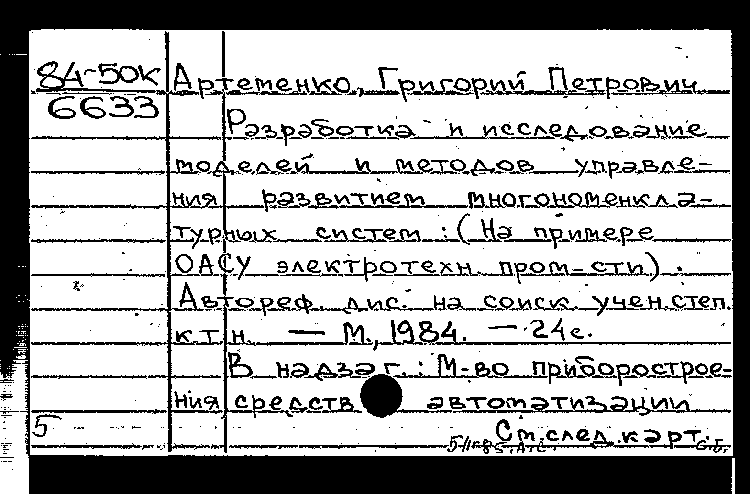 84-50к Артеменко, Григорий Петрович
6633
Разработка и исследование
моделей и методов управле-
ния развитием многономенкла-
турных систем: (На примере
ОАСУ электротехн. пром-сти).
Автореф. дис. на соиск. учен. степ.
к.т.н. — М., 1984. — 24с.
В надзаг.: М-во приборострое-
ния средств автоматизации
5 См. след. карт.